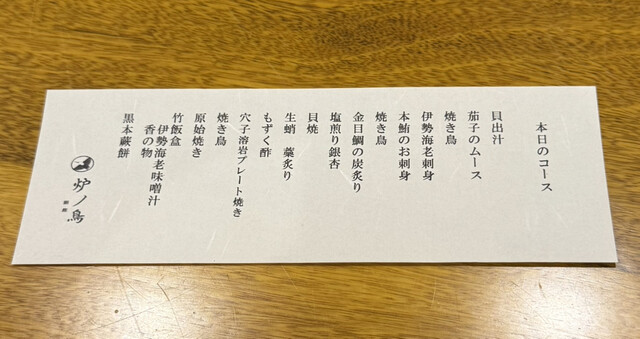 本日のコース
貝出汁
茄子のムース
焼き鳥
伊勢海老刺身
本鮪のお刺身
焼き鳥
金目鯛の炭炙り
塩煎り銀杏
貝焼
生蛸 藁炙り
もずく酢
穴子溶岩プレート焼き
焼き鳥
原始焼き
竹飯盒
伊勢海老味噌汁
香の物
黒本蕨餅
炉ノ鳥